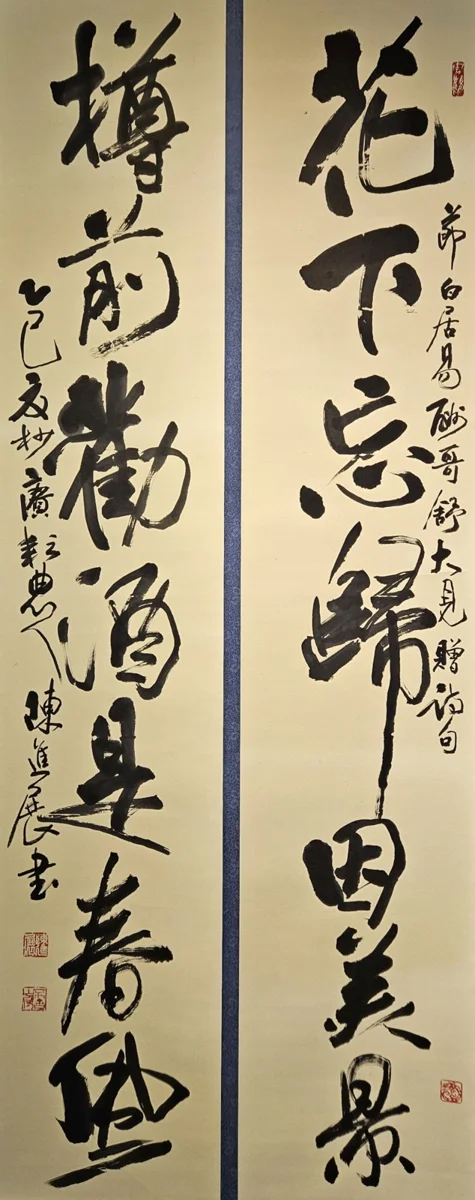 花下忘歸因美景
節白居易酬哥舒大見贈詩句
樽前勸酒是春風
乙巳夏杪廣耘愚人陳進展書